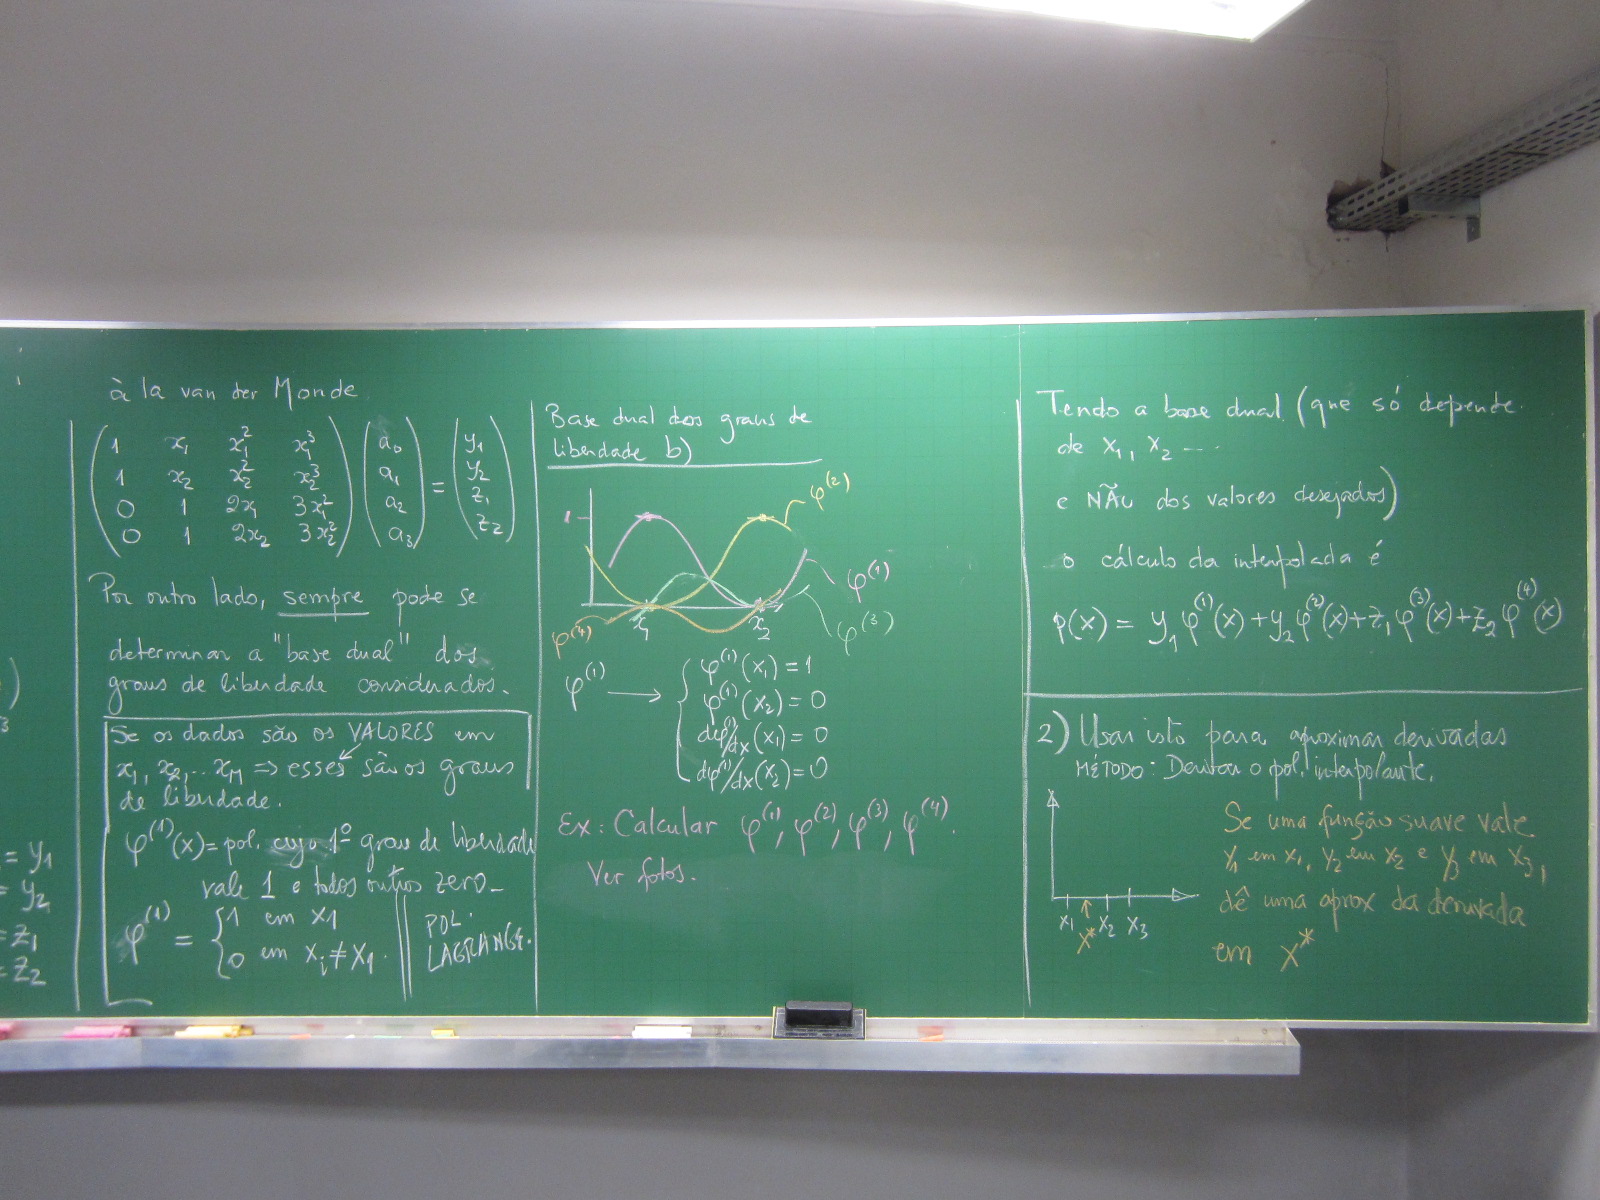 )
3
= y1
= y2
= z1
= z2
à la van der Monde
( 1 x1 x1² x1³ ) ( a0 ) ( y1 )
( 1 x2 x2² x2³ ) ( a1 ) = ( y2 )
( 0 1 2x1 3x1² ) ( a2 ) ( z1 )
( 0 1 2x2 3x2² ) ( a3 ) ( z2 )
Por outro lado, sempre pode se
determinar a "base dual" dos
graus de liberdade considerados.
Se os dados são os VALORES em
x1, x2, ... xM ⇒ esses são os graus
de liberdade.
φ⁽¹⁾(x) = pol. cujo 1º grau de liberdade
vale 1 e todos outros zero.
φ⁽¹⁾ = { 1 em x1
0 em xi ≠ x1.
POL.
LAGRANGE.
Base dual dos graus de
liberdade b)
1
φ⁽²⁾
φ⁽¹⁾
φ⁽³⁾
φ⁽⁴⁾
x1 x2
φ⁽¹⁾ → { φ⁽¹⁾(x1) = 1
φ⁽¹⁾(x2) = 0
dφ⁽¹⁾/dx (x1) = 0
dφ⁽¹⁾/dx (x2) = 0
Ex: Calcular φ⁽¹⁾, φ⁽²⁾, φ⁽³⁾, φ⁽⁴⁾.
Ver fotos.
Tendo a base dual (que só depende
de x1, x2 ...
e NÃO dos valores desejados)
o cálculo da interpolada é
p(x) = y1 φ⁽¹⁾(x) + y2 φ⁽²⁾(x) + z1 φ⁽³⁾(x) + z2 φ⁽⁴⁾(x)
2) Usar isto para aproximar derivadas
MÉTODO: Derivar o pol. interpolante.
x1 x2 x3
x*
Se uma função suave vale
y1 em x1, y2 em x2 e y3 em x3,
dê uma aprox da derivada
em x*